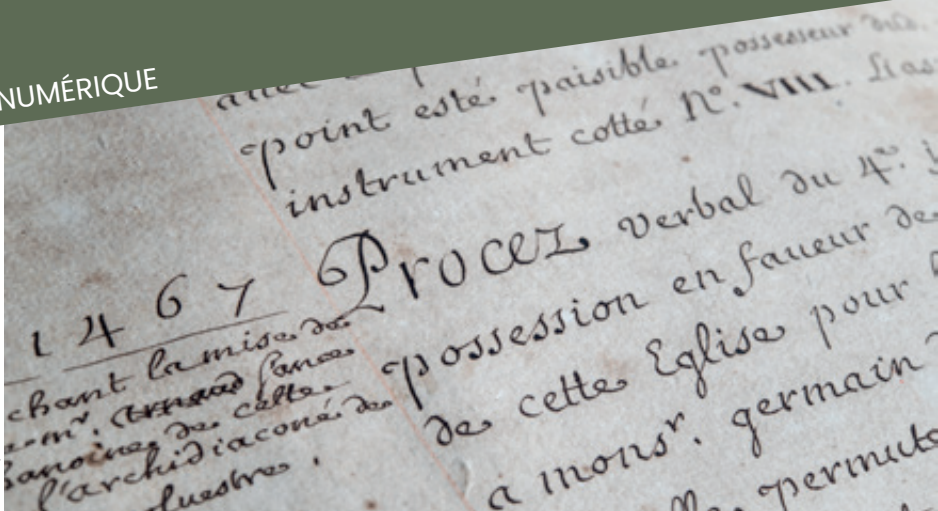 NUMÉRIQUE
point esté paisible possesseur dud.
instrument cotté. N°. VIII. Lias
1467
Procez verbal du 4e. j
possession en faueur de
de cette Eglise pour
a monsr. germain
permuta
chant la mise de
mr. Arnaud
anoine de cette
l'archidiaconé de
luestre.